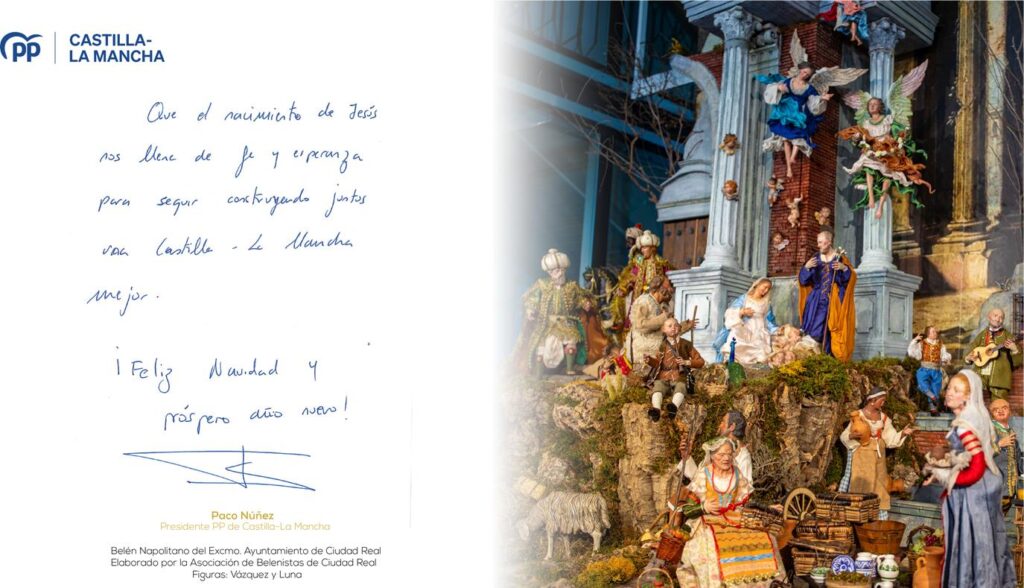 PP
CASTILLA-
LA MANCHA
Que el nacimiento de Jesús
nos llene de fe y esperanza
para seguir construyendo juntos
una Castilla - La Mancha
mejor.
¡Feliz Navidad y
próspero año nuevo!
Paco Núñez
Presidente PP de Castilla-La Mancha
Belén Napolitano del Excmo. Ayuntamiento de Ciudad Real
Elaborado por la Asociación de Belenistas de Ciudad Real
Figuras: Vázquez y Luna